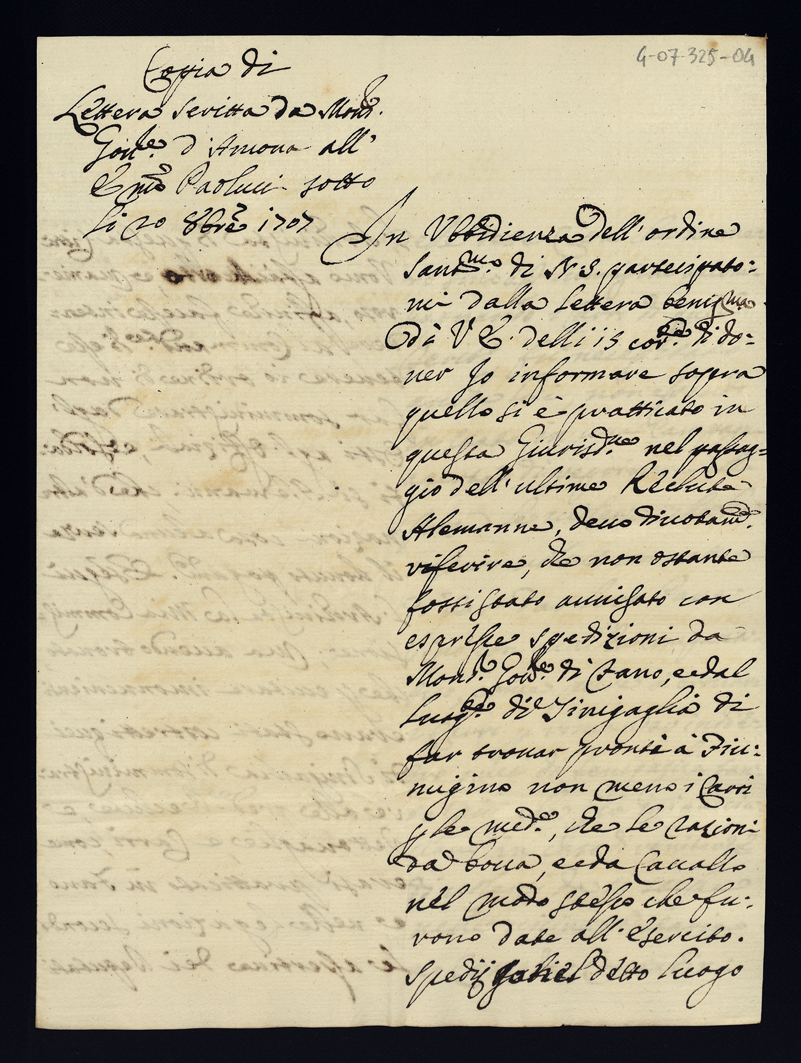 4-07-325-04
Coppia di
Lettera scritta da Mons.r
Gov.re d'Ancona all'
E.mo Paolucci sotto
li 20 8bre 1707
In Ubbidienza dell'ordine
Sant.mo di N S. partecipato=
mi dalla lettera benig.ma
di V E. delli 15 cor.te di do=
ver Io informare sopra
quello si è pratticato in
questa Giurisd.ne nel passag=
gio dell'ultime Reclute
Alemanne, devo divotam.te
riferire, che non ostante
fossi stato avvisato con
espresse spedizioni da
Mons.r Gov.re di Fano, e dal
Luog.te di Sinigaglia di
far trovar pronti à Fiu=
migino non meno i Carri
p le med.e, che le razioni
da bocca, e da Cavallo
nel modo stesso che fu=
rono date all'Esercito.
Spedij detto luogo